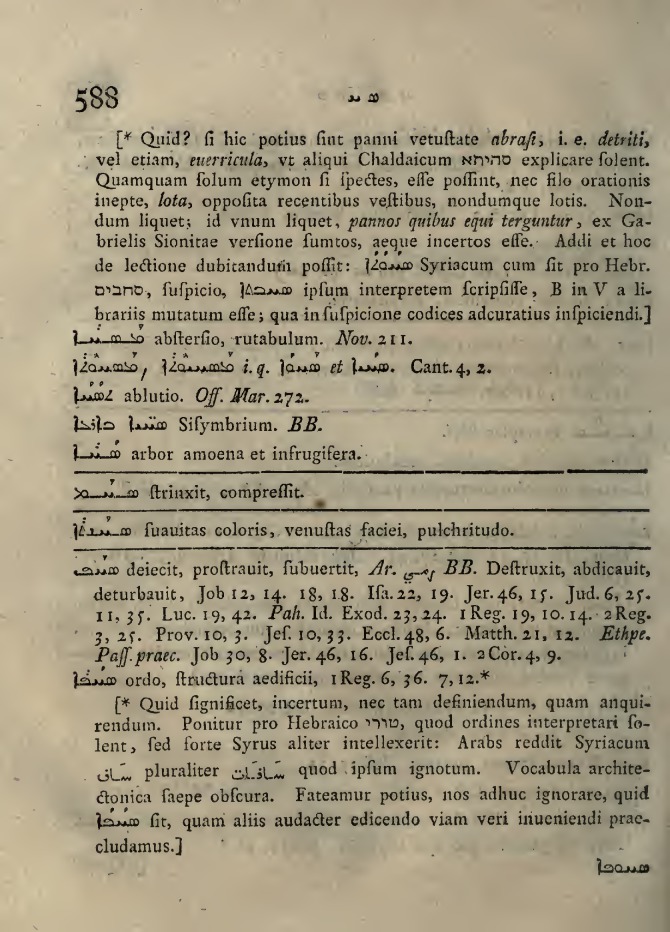 588 ܣܚ
[* Quid? ſi hic potius ſint panni vetuſtate abraſi, i. e. detriti,
vel etiam, euerricula, vt aliqui Chaldaicum סחיתא explicare ſolent.
Quamquam ſolum etymon ſi ſpectes, eſſe poſſint, nec filo orationis
inepte, lota, oppoſita recentibus veſtibus, nondumque lotis. Non-
dum liquet; id vnum liquet, pannos quibus equi terguntur, ex Ga-
brielis Sionitae verſione ſumtos, aeque incertos eſſe. Addi et hoc
de lectione dubitandum poſſit: Syriacum cum ſit pro Hebr.
סחבים, ſuſpicio, ipſum interpretem ſcripſiſſe, B in V a li-
brariis mutatum eſſe; qua in ſuſpicione codices adcuratius inſpiciendi.]
abſterſio, rutabulum. Nov. 211.
i. q. et Cant. 4, 2.
ablutio. Off. Mar. 272.
Siſymbrium. BB.
arbor amoena et infrugifera.
ſtrinxit, compreſſit.
ſuauitas coloris, venuſtas faciei, pulchritudo.
ܣܚܦ deiecit, proſtrauit, ſubuertit, Ar. BB. Deſtruxit, abdicauit,
deturbauit, Job 12, 14. 18, 18. Iſa. 22, 19. Jer. 46, 15. Jud. 6, 25.
11, 35. Luc. 19, 42. Pah. Id. Exod. 23, 24. 1 Reg. 19, 10. 14. 2 Reg.
3, 25. Prov. 10, 3. Jeſ. 10, 33. Eccl. 48, 6. Matth. 21, 12. Ethpe.
Paſſ. praec. Job 30, 8. Jer. 46, 16. Jeſ. 46, 1. 2 Cor. 4, 9.
ordo, ſtructura aedificii, 1 Reg. 6, 36. 7, 12.*
[* Quid ſignificet, incertum, nec tam definiendum, quam anqui-
rendum. Ponitur pro Hebraico טורי, quod ordines interpretari ſo-
lent, ſed forte Syrus aliter intellexerit: Arabs reddit Syriacum
pluraliter quod ipſum ignotum. Vocabula archite-
ctonica ſaepe obſcura. Fateamur potius, nos adhuc ignorare, quid
ſit, quam aliis audacter edicendo viam veri inueniendi prae-
cludamus.]